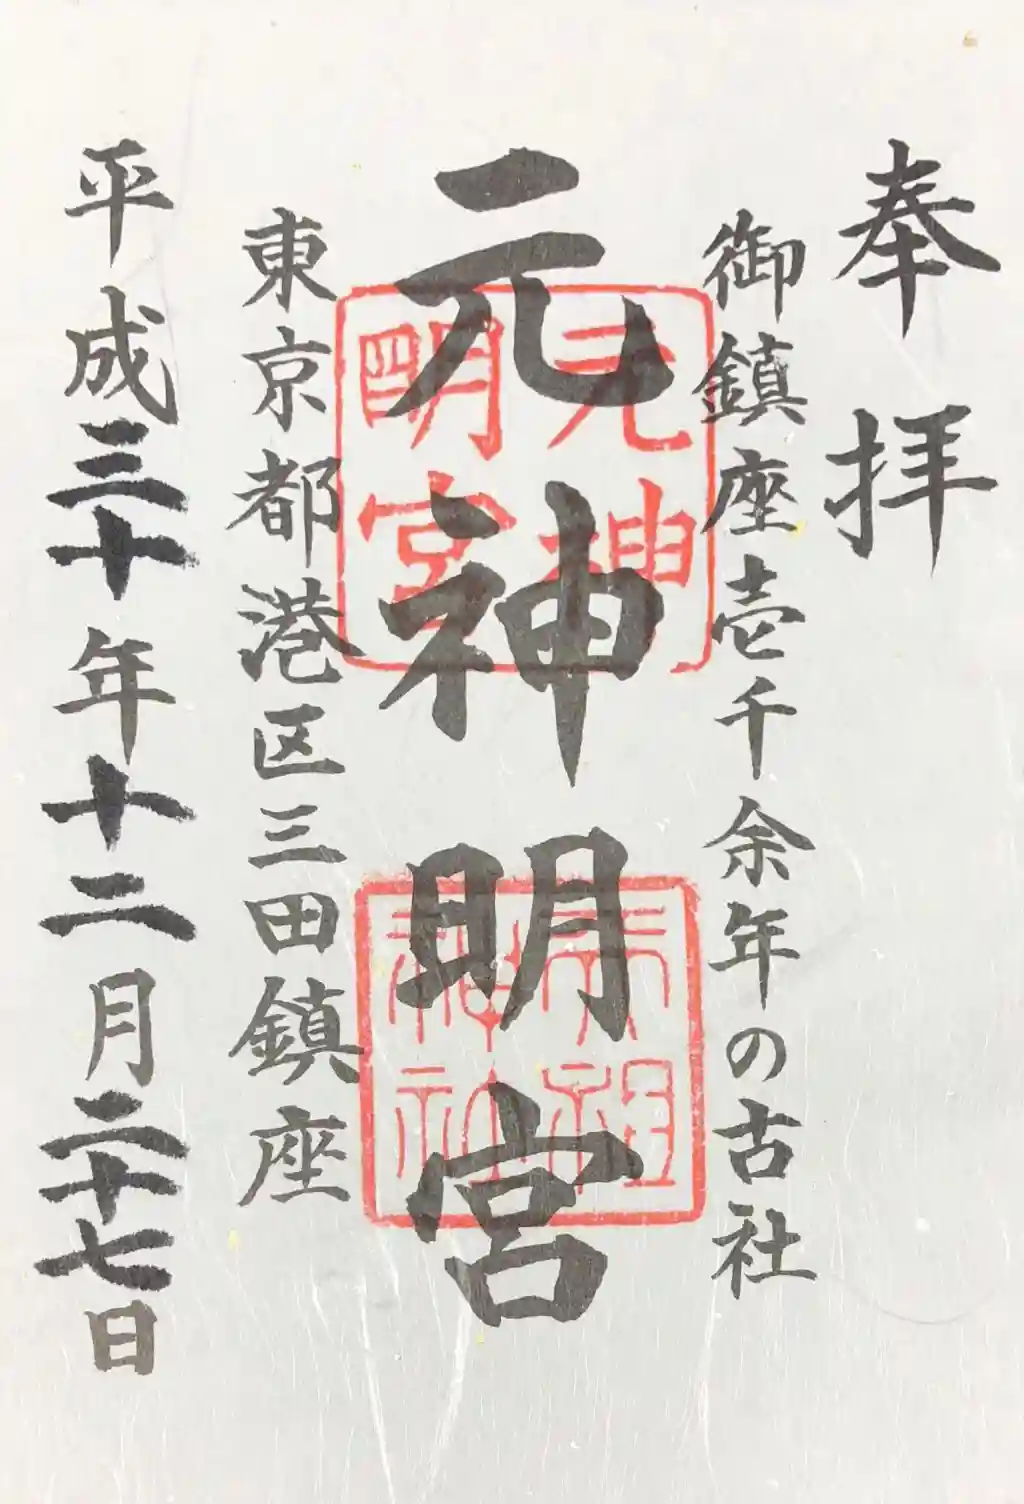 奉拝
御鎮座壱千余年の古社
元神明宮
元神明宮
天祖神社
東京都港区三田鎮座
平成三十年十二月二十七日